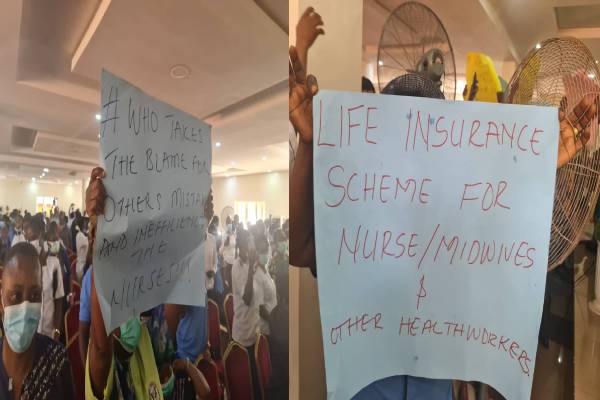 # WHO TAKES
THE BLAME FOR
OTHERS MISTAKE
AND INEFFICIENCY
THE
NURSES!!!
LIFE INSURANCE
SCHEME FOR
NURSE/MIDWIVES
&
OTHER HEALTHWORKERS